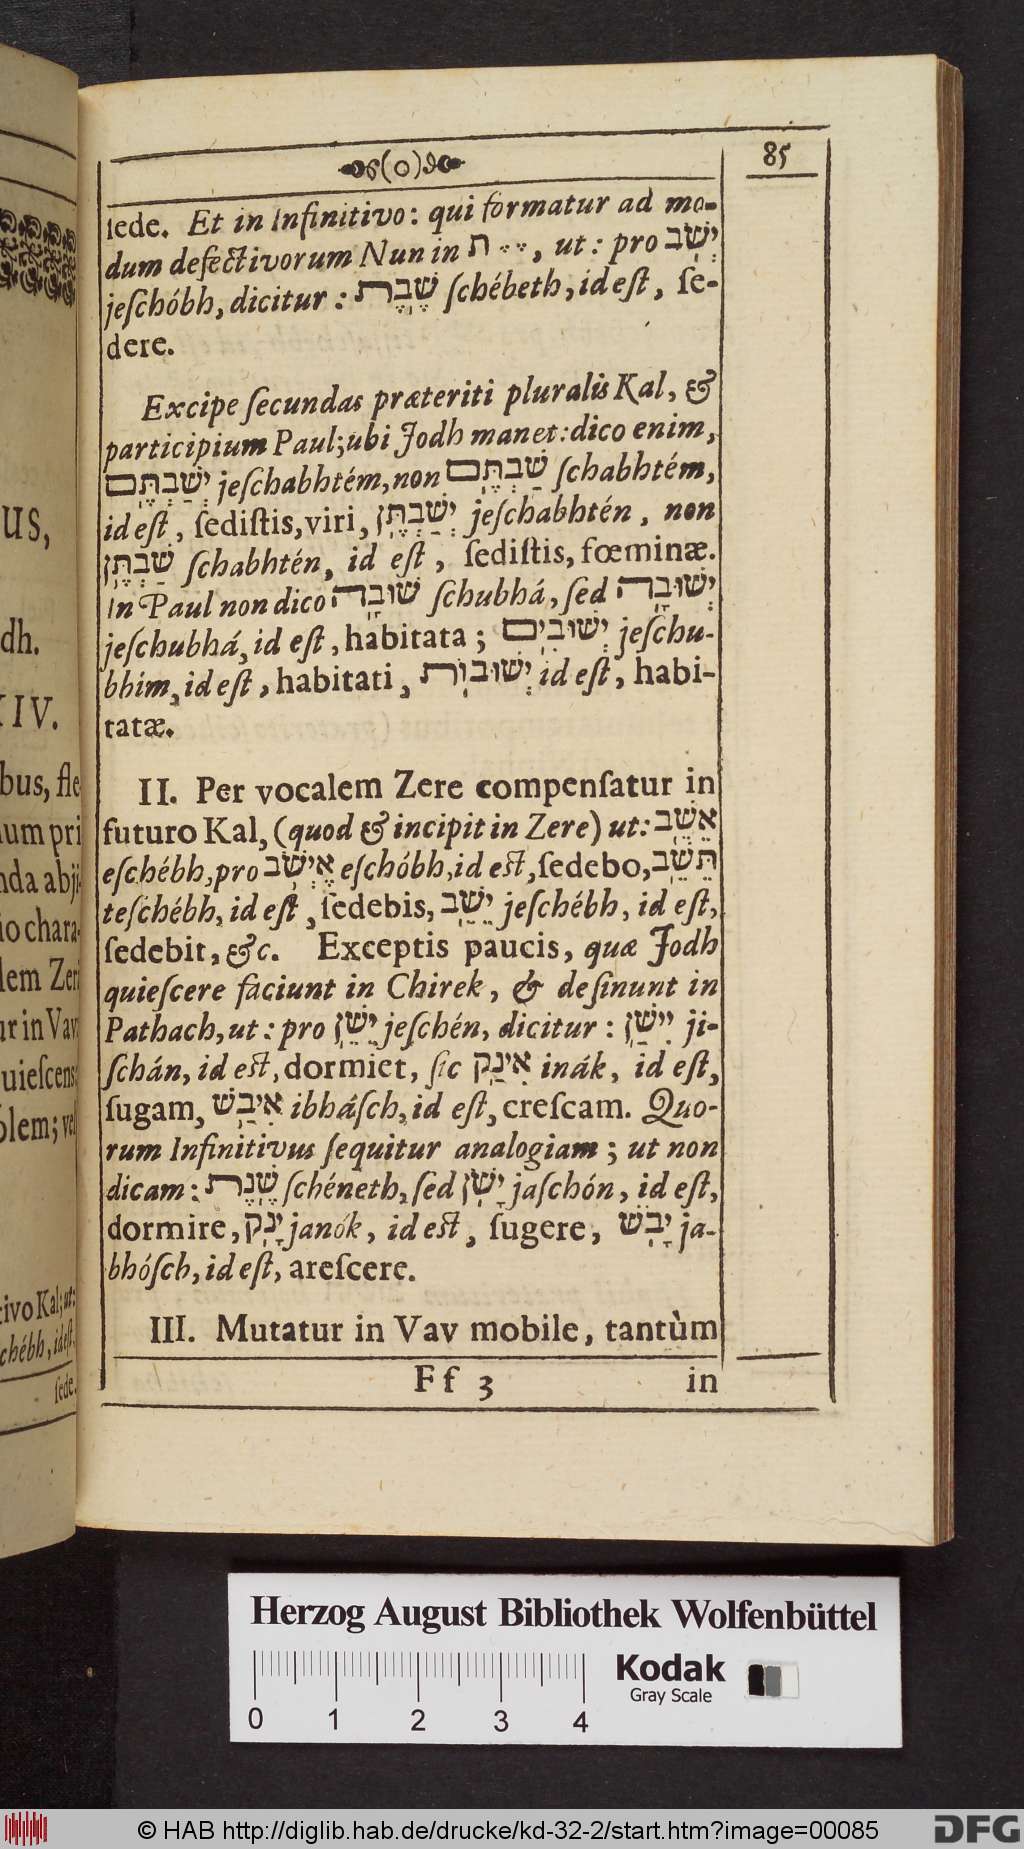 85
ſede. Et in Infinitivo: qui formatur ad mo-
dum defectivorum Nun in ת ֶ ֶ , ut: pro יְשֹׁב
jeſchóbh, dicitur: שֶׁבֶת ſchébeth, id eſt, ſe-
dere.
Excipe ſecundas præteriti pluralis Kal, &
participium Paul; ubi Jodh manet: dico enim,
יְשַׁבְתֶּם jeſchabhtém, non שַׁבְתֶּם ſchabhtém,
id eſt, ſediſtis, viri, יְשַׁבְתֶּן jeſchabhtén, non
שַׁבְתֶּן ſchabhtén, id eſt, ſediſtis, fœminæ.
In Paul non dico שׁוּבָה ſchubhá, ſed יְשׁוּבָה
jeſchubhá, id eſt, habitata; יְשׁוּבִים jeſchu-
bhim, id eſt, habitati, יְשׁוּבוֹת id eſt, habi-
tatæ.
II. Per vocalem Zere compenſatur in
futuro Kal, (quod & incipit in Zere) ut: אֵשֵׁב
eſchébh, pro אֶיְשֹׁב eſchóbh, id eſt, ſedebo, תֵּשֵׁב
teſchébh, id eſt, ſedebis, יֵשֵׁב jeſchébh, id eſt,
ſedebit, &c. Exceptis paucis, quæ Jodh
quieſcere faciunt in Chirek, & deſinunt in
Pathach, ut: pro יֵשֵׁן jeſchén, dicitur: יִישַׁן ji-
ſchán, id eſt, dormiet, ſic אִינַק inák, id eſt,
ſugam, אִיבַשׁ ibháſch, id eſt, creſcam. Quo-
rum Infinitivus ſequitur analogiam; ut non
dicam: שֶׁנֶת ſchéneth, ſed יָשֹׁן jaſchón, id eſt,
dormire, יָנֹק janók, id eſt, ſugere, יָבֹשׁ ja-
bhóſch, id eſt, areſcere.
III. Mutatur in Vav mobile, tantùm
Ff 3 in
us,
dh.
IV.
bus, fle
num pri
nda abji
io chara-
lem Zeri
ur in Vav
uieſcens
olem; vel
tivo Kal; ut:
chébh, id eſt,
ſede.
Herzog August Bibliothek Wolfenbüttel
Kodak
Gray Scale
0 1 2 3 4
© HAB http://diglib.hab.de/drucke/kd-32-2/start.htm?image=00085
DFG